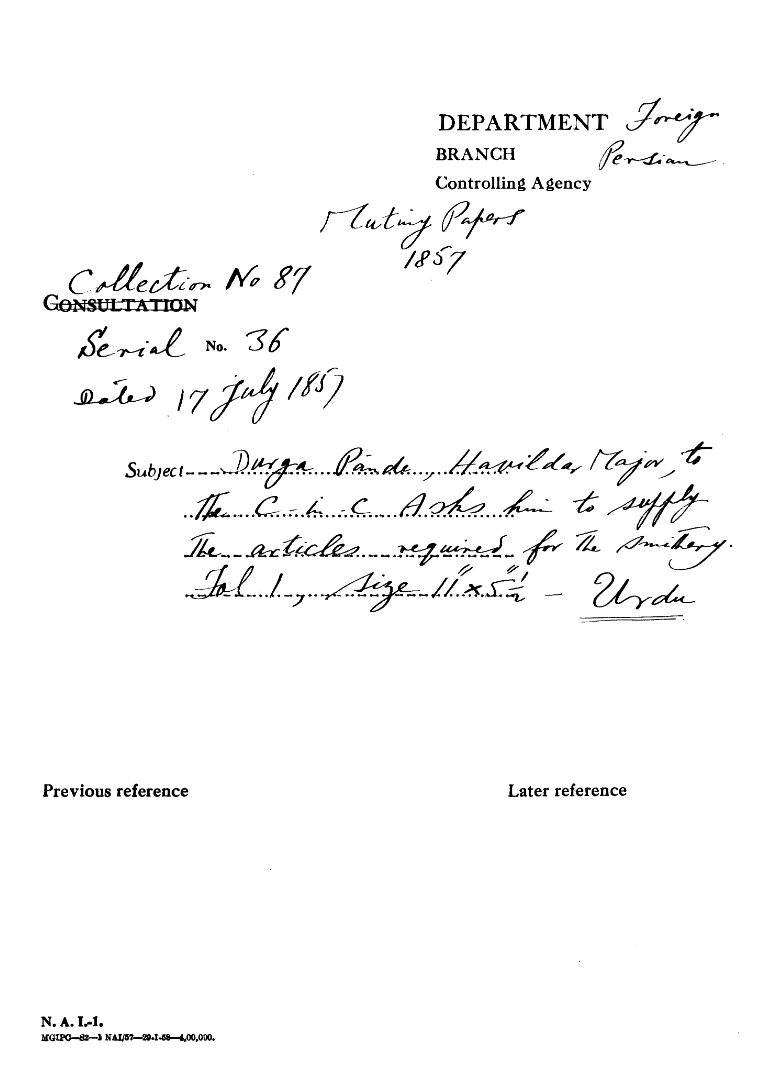 DEPARTMENT Foreign
BRANCH Persian
Controlling Agency
Mutiny Papers
1857
Collection No 87
CONSULTATION
Serial No. 36
Dated 17 July 1857
Subject Durga Pande, Havildar Major, to
the C-in-C Asks him to supply
the articles required for the smithery.
Fol 1, size 11"x5"½ - Urdu
Previous reference Later reference
N. A. I.-1.
MGIPC—82—1 NAI/57—29-1-58—4,00,000.